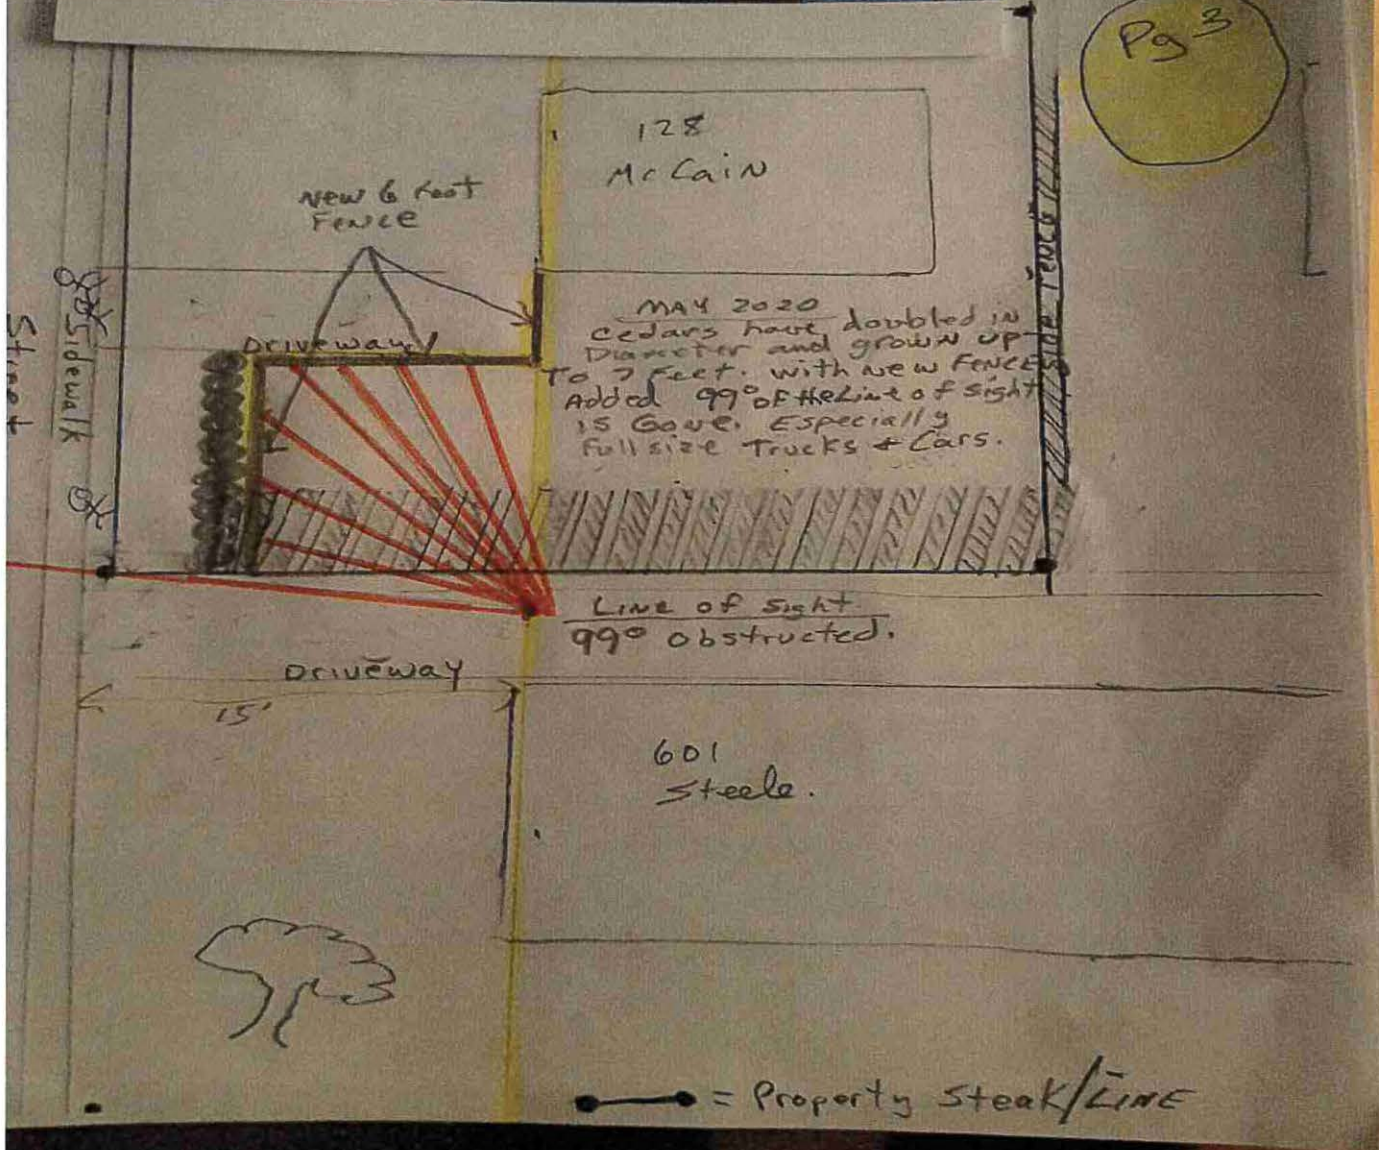 Pg 3
128
McCain
New 6 Foot
Fence
Driveway
MAY 2020
Cedars have doubled in
Diameter and grown up
To 7 Feet. With New FENCE
Added 99° of the Line of sight
is Gone. Especially
Full size Trucks + Cars.
Side FENCE
Sidewalk
Street
Line of Sight
99° obstructed.
Driveway
15'
601
Steele.
= Property Steak/LINE